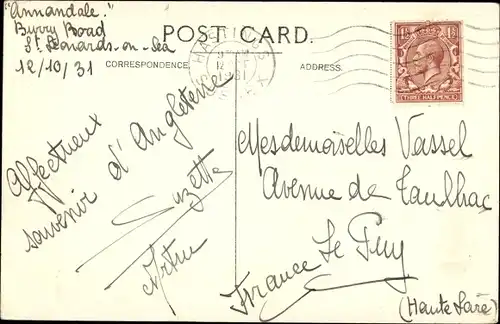 "Annandale."
Byrry Road
St Leonards-on-Sea
12/10/31
POST CARD.
CORRESPONDENCE.
ADDRESS.
HASTINGS
12
31
1½
1½
THREE HALFPENCE
Affectueux
souvenir d'Angleterre
Suzette
Mesdemoiselles Vassel
Avenue de Taulhac
France Le Puy
(Haute Loire)